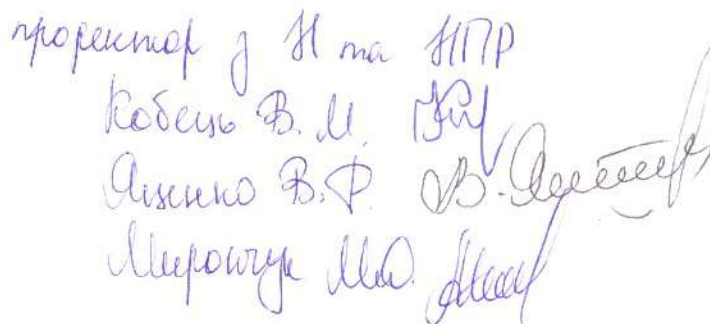 проректор з Н та НПР
Кобець В. М.
Яценко В. Ф.
Мирончук М.О.